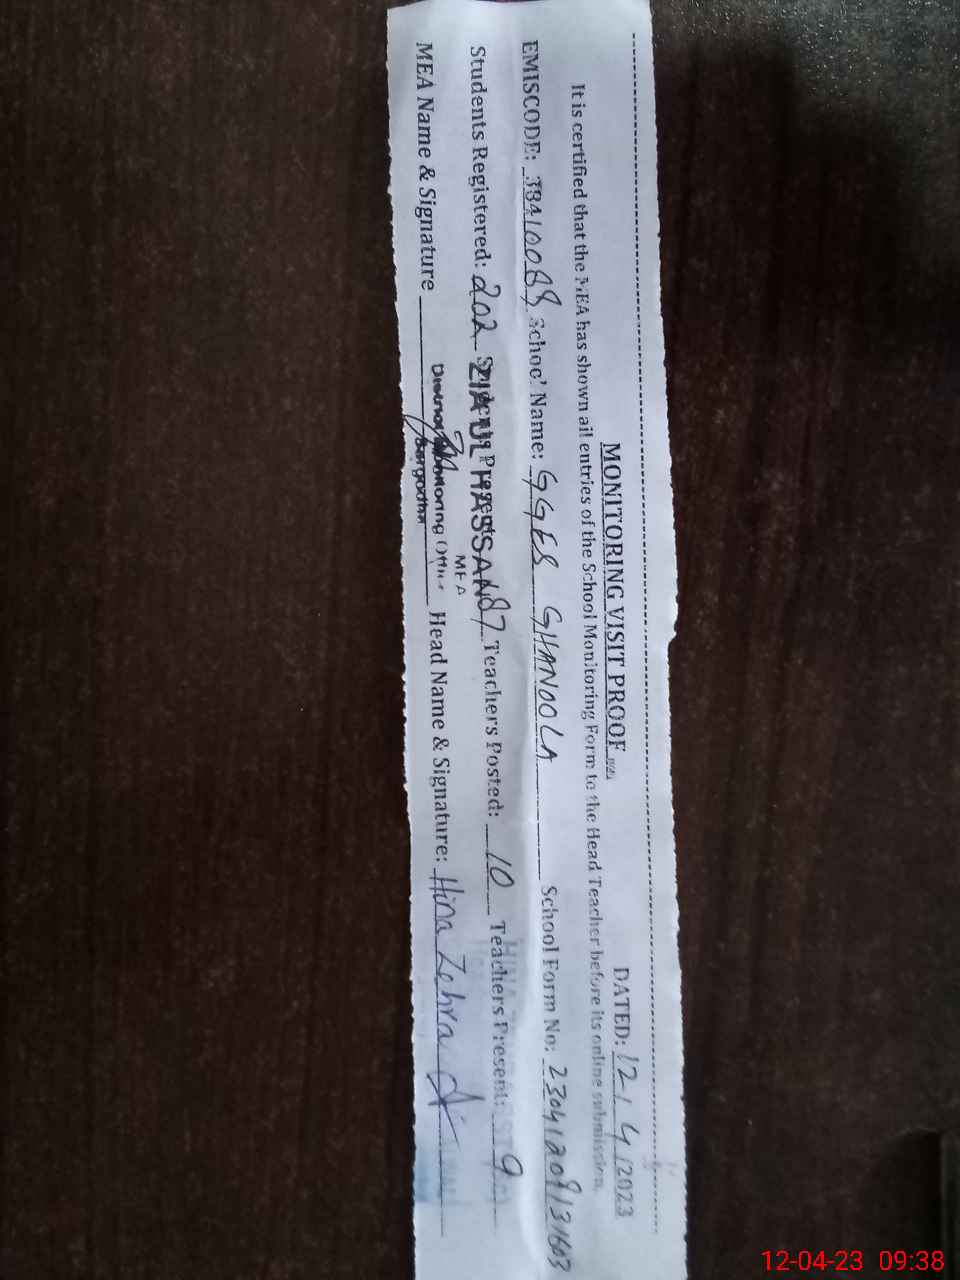 MONITORING VISIT PROOF
DATED: 12/4/2023
It is certified that the MEA has shown all entries of the School Monitoring Form to the Head Teacher before its online submission.
EMISCODE: 38410088 School Name: GGES GHANOOLA School Form No:
Students Registered: 202 Students Present: 187 Teachers Posted: 10 Teachers Present: 9
ZIA UL HASSAN
MEA
District Monitoring Office
Sargodha
MEA Name & Signature Head Name & Signature: Hina Zehra
12-04-23 09:38